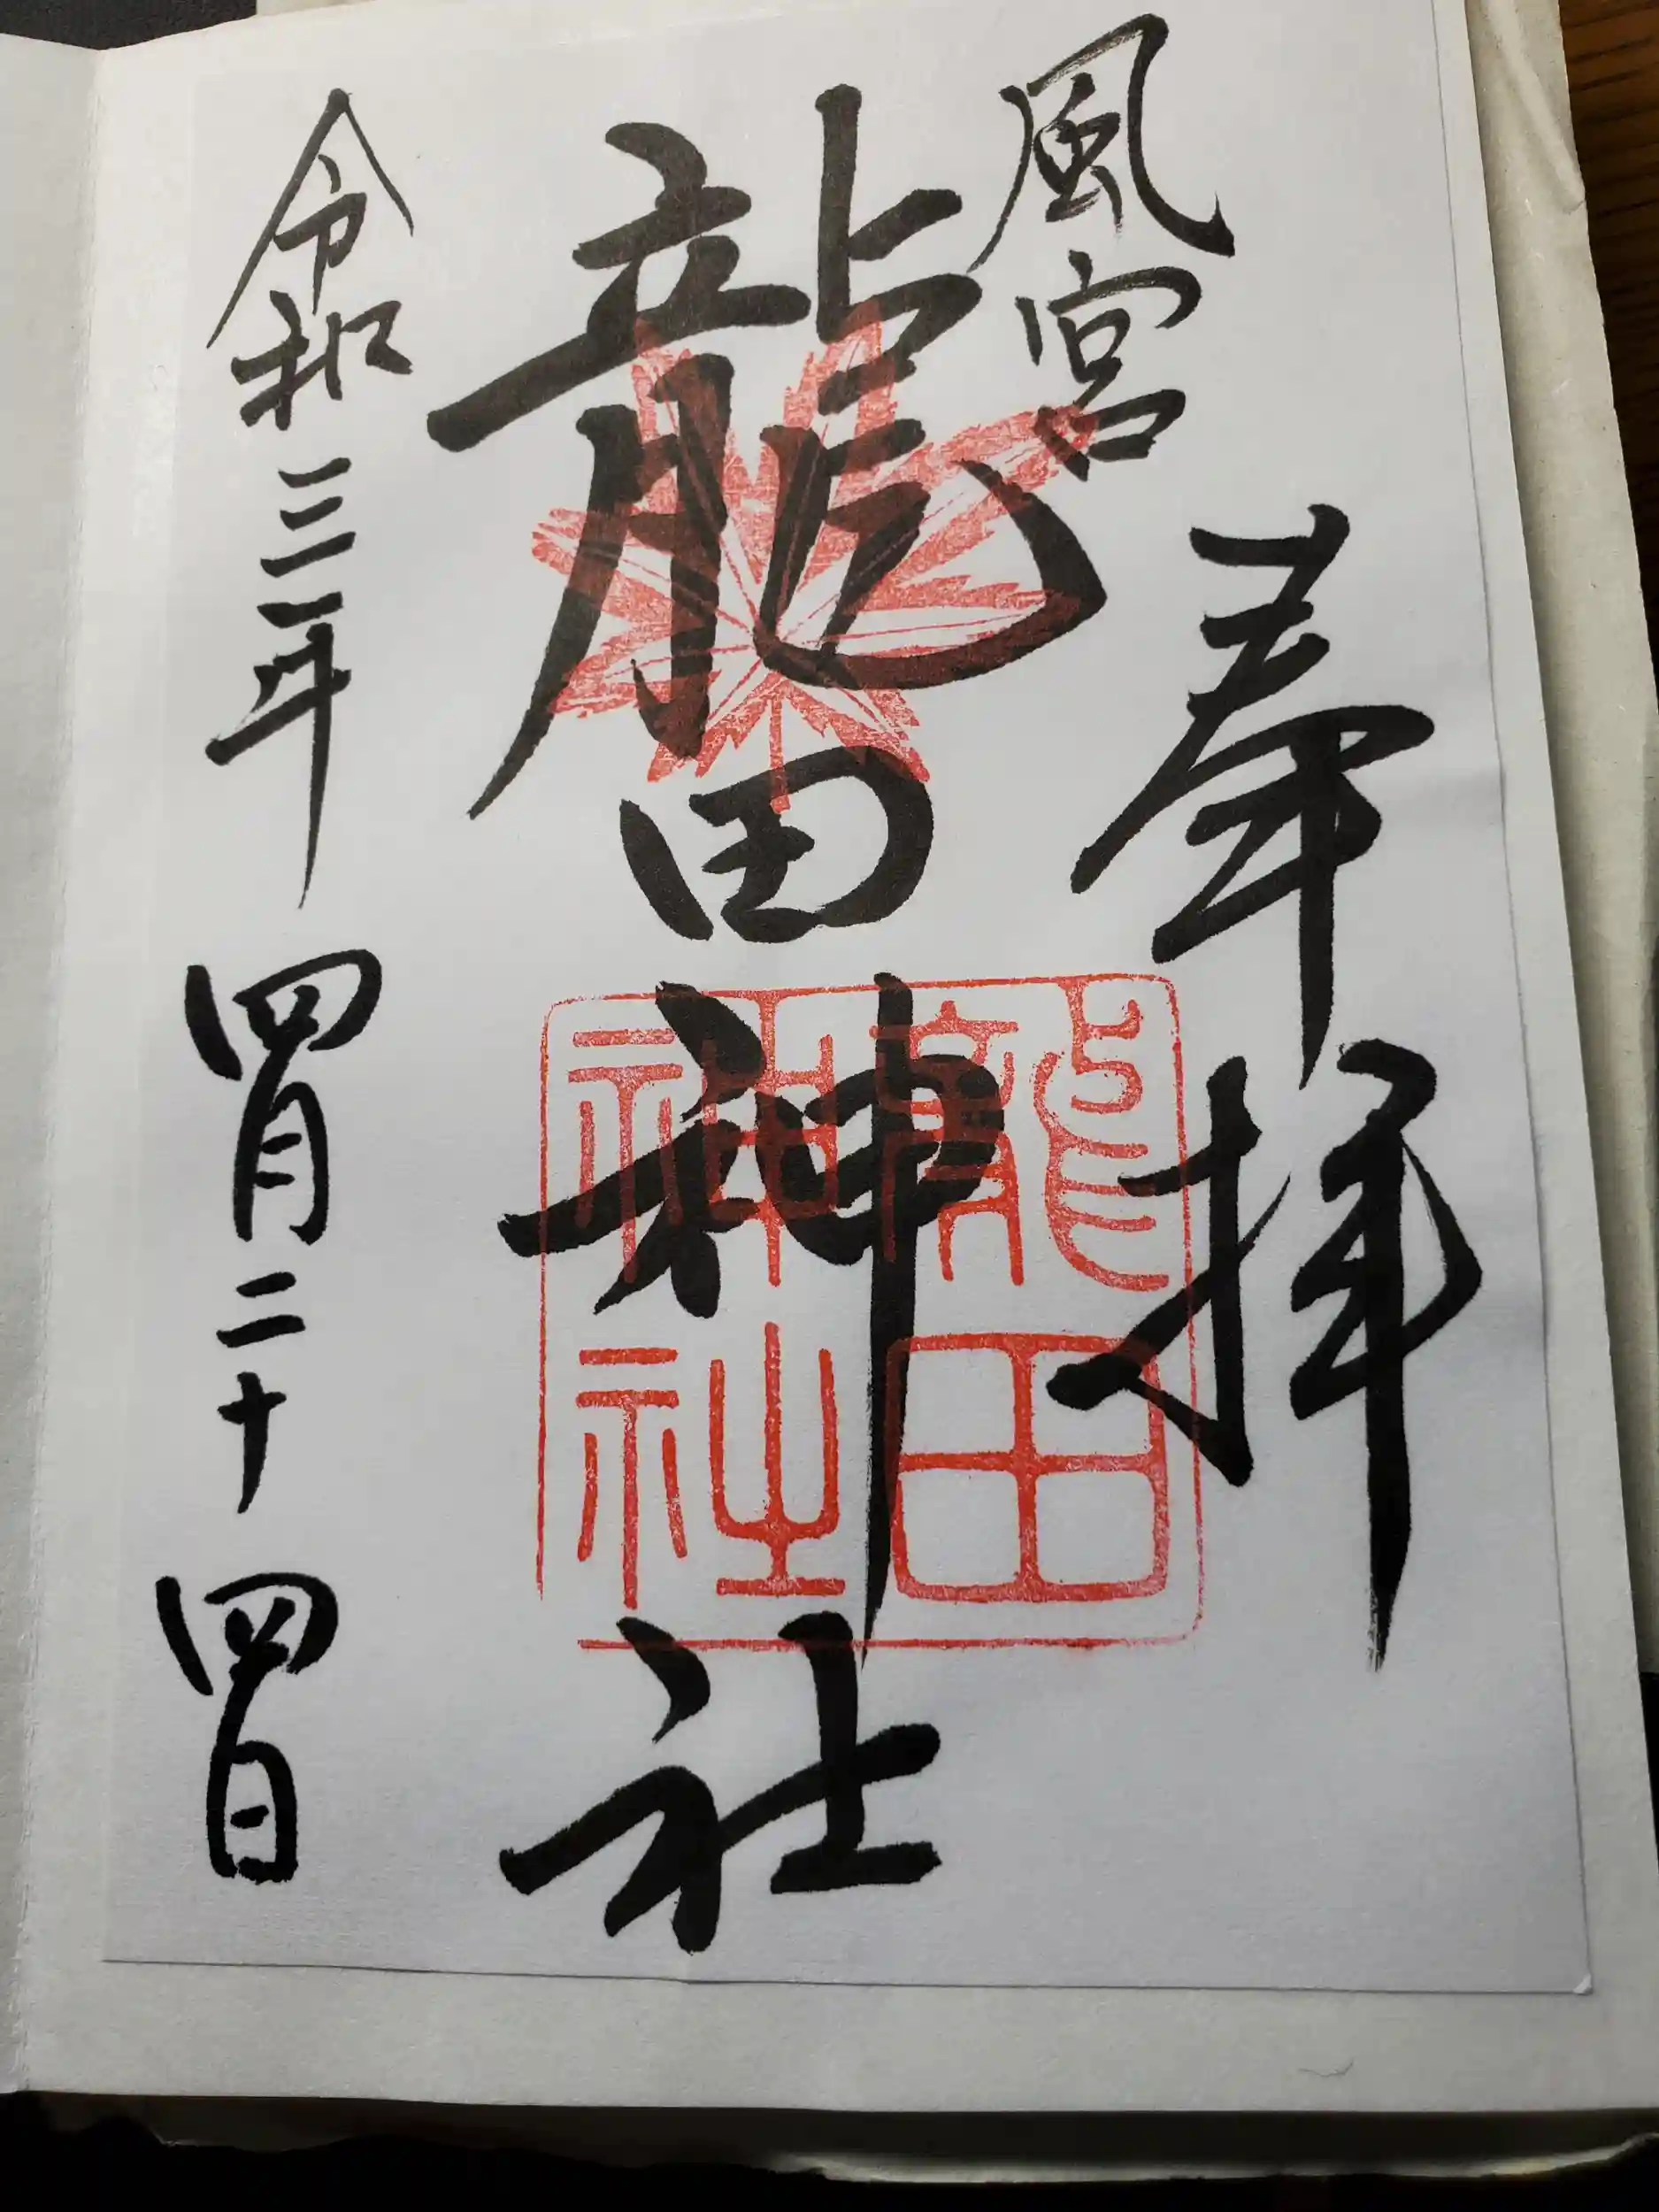 奉拝
風宮
龍田神社
龍田
神社
令和三年四月二十四日